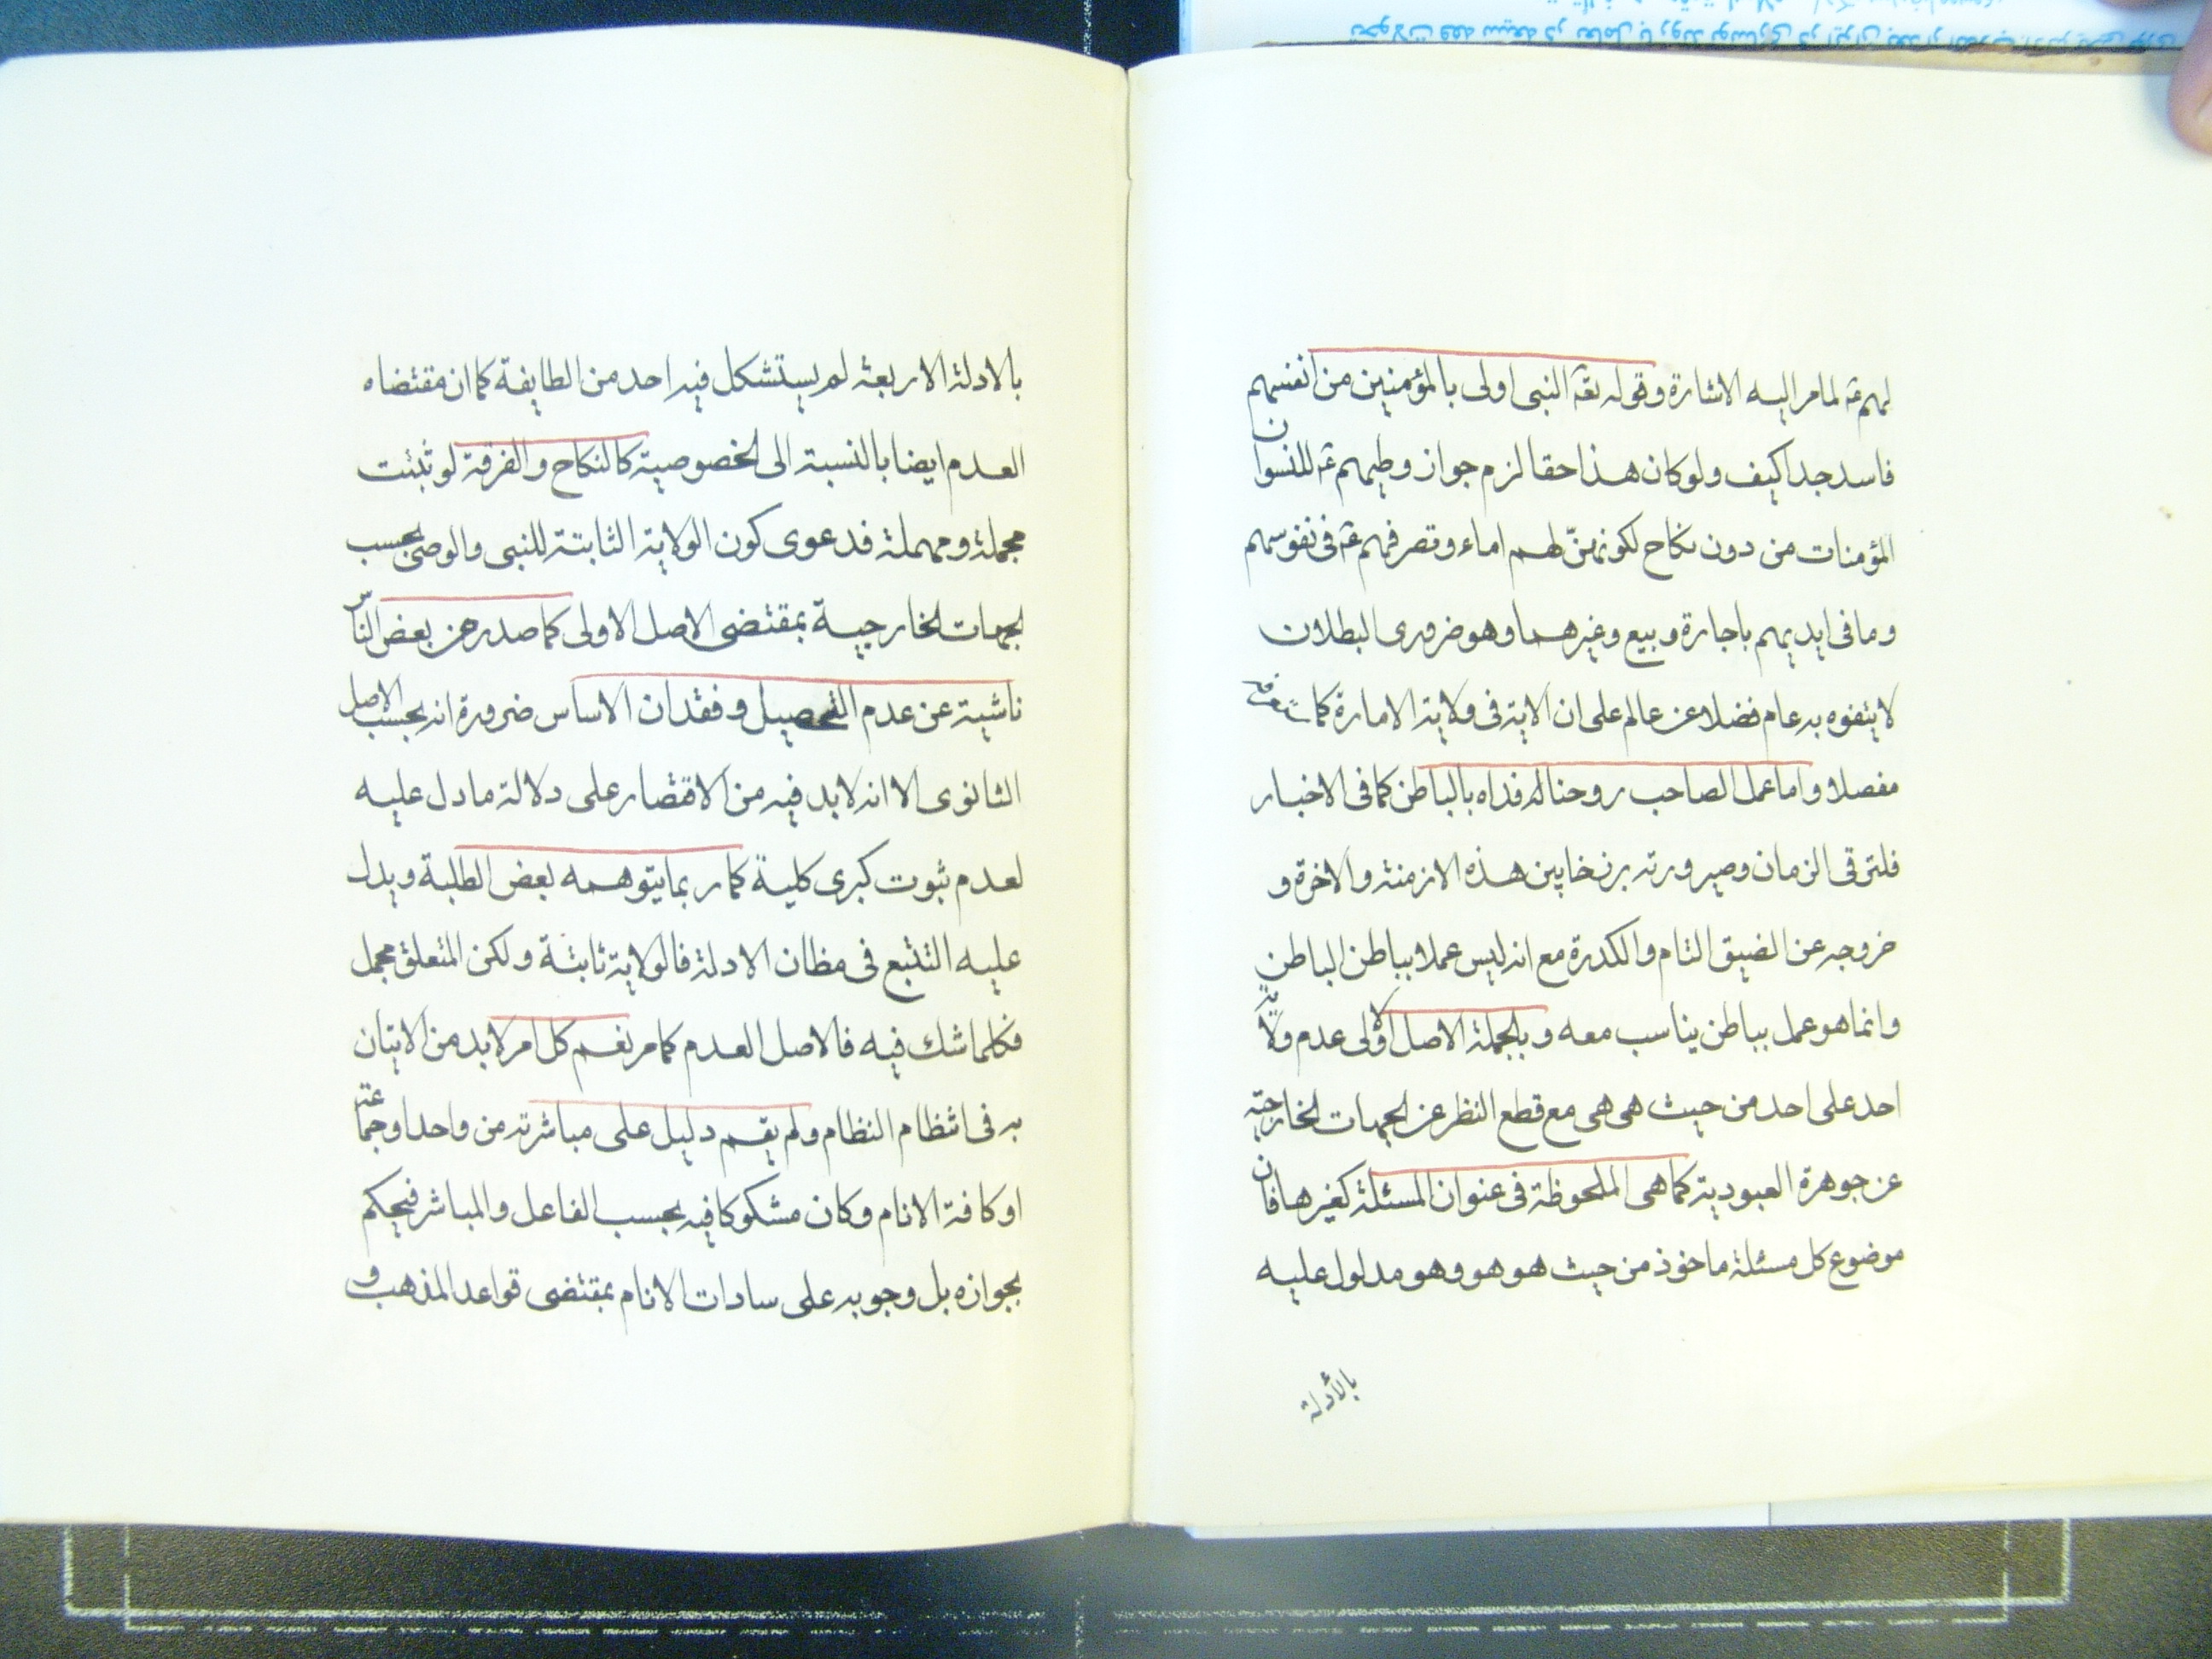 لهم ع لما مر اليه الاشارة وقوله تعالى النبى اولى بالمؤمنين من انفسهم
فاسد جدا كيف ولو كان هذا حقا لزم جواز وطيهم ع للنسوان
المؤمنات من دون نكاح لكونهنّ لهم اماء وتصرفهم ع فى نفوسهم
وما فى ايديهم باجارة وبيع وغيرهما وهو ضرورى البطلان
لا يتفوه به عام فضلا عن عالم على ان الاية فى ولاية الامارة كما
مفصلا واما عمل الصاحب روحنا له فداه بالباطن كما فى الاخبار
فلترقى الزمان وصيرورته برزخا بين هذه الازمنة والاخرة و
خروجه عن الضيق التام والكدرة مع انه ليس عملا بباطن الباطن
وانما هو عمل بباطن يناسب معه وبالجملة الاصل الاولى عدم ولاية
احد على احد من حيث هى هى مع قطع النظر عن الجهات الخارجية
عن جوهرة العبودية كما هى الملحوظة فى عنوان المسئلة كغيرها فان
موضوع كل مسئلة ماخوذ من حيث هو هو وهو مدلول عليه
بالأدلة
بالادلة الاربعة لم يستشكل فيه احد من الطايفة كما ان مقتضاه
العدم ايضا بالنسبة الى الخصوصية كالنكاح والفرقة لو ثبتت
مجملة ومهملة فدعوى كون الولاية الثابتة للنبى والوصى بحسب
الجهات الخارجية بمقتضى الاصل الاولى كما صدر عن بعض الناس
ناشية عن عدم التحصيل وفقدان الاساس ضرورة انه بحسب الاصل
الثانوى الا انه لابد فيه من الاقتصار على دلالة ما دل عليه
لعدم ثبوت كبرى كلية كما ربما يتوهمه بعض الطلبة ويدل
عليه التتبع فى مظان الادلة فالولاية ثابتة ولكن المتعلق مجمل
فكلما شك فيه فالاصل العدم كما مر نعم كل امر لابد من الاتيان
به فى انتظام النظام ولم يقم دليل على مباشرته من واحد او جماعة
او كافة الانام وكان مشكوكا فيه بحسب الفاعل والمباشر فيحكم
بجوازه بل وجوبه على سادات الانام بمقتضى قواعد المذهب و